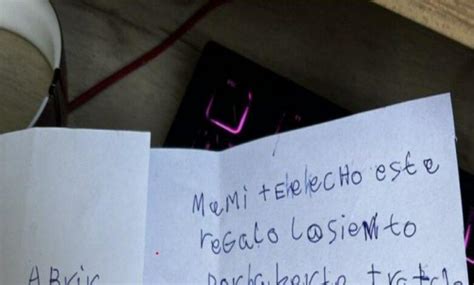 Mami te he hecho este
regalo lo siento
por haberte tratado
Abrir